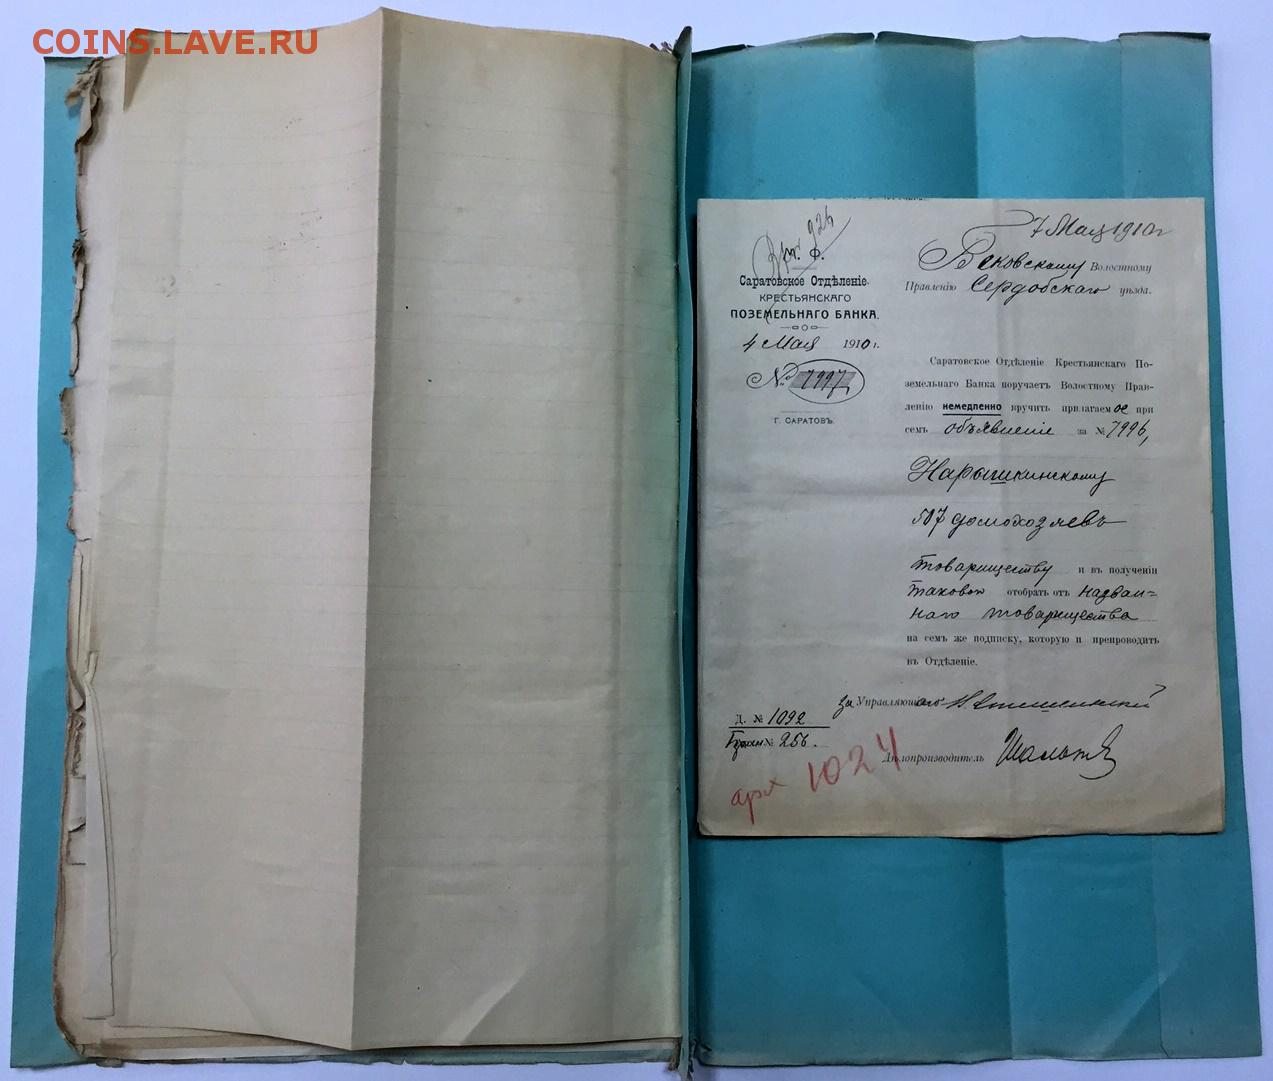 COINS.LAVE.RU
926
М. Ф.
Саратовское Отдѣленіе
КРЕСТЬЯНСКАГО
ПОЗЕМЕЛЬНАГО БАНКА.
4 Мая 1910 г.
№ 7997
Г. САРАТОВЪ.
7 Мая 1910 г
Бековскому Волостному
Правленію Сердобскаго уѣзда.
Саратовское Отдѣленіе Крестьянскаго По-
земельнаго Банка поручаетъ Волостному Прав-
ленію немедленно вручить прилагаемое при
семъ объявленіе за № 7996,
Нарышкинскому
507 домохозяевъ
товариществу и въ полученіи
таковой отобрать отъ назван-
наго товарищества
на семъ же подписку, которую и препроводить
въ Отдѣленіе.
за Управляющаго
Д. № 1092
№ 256.
Дѣлопроизводитель
арх 1024